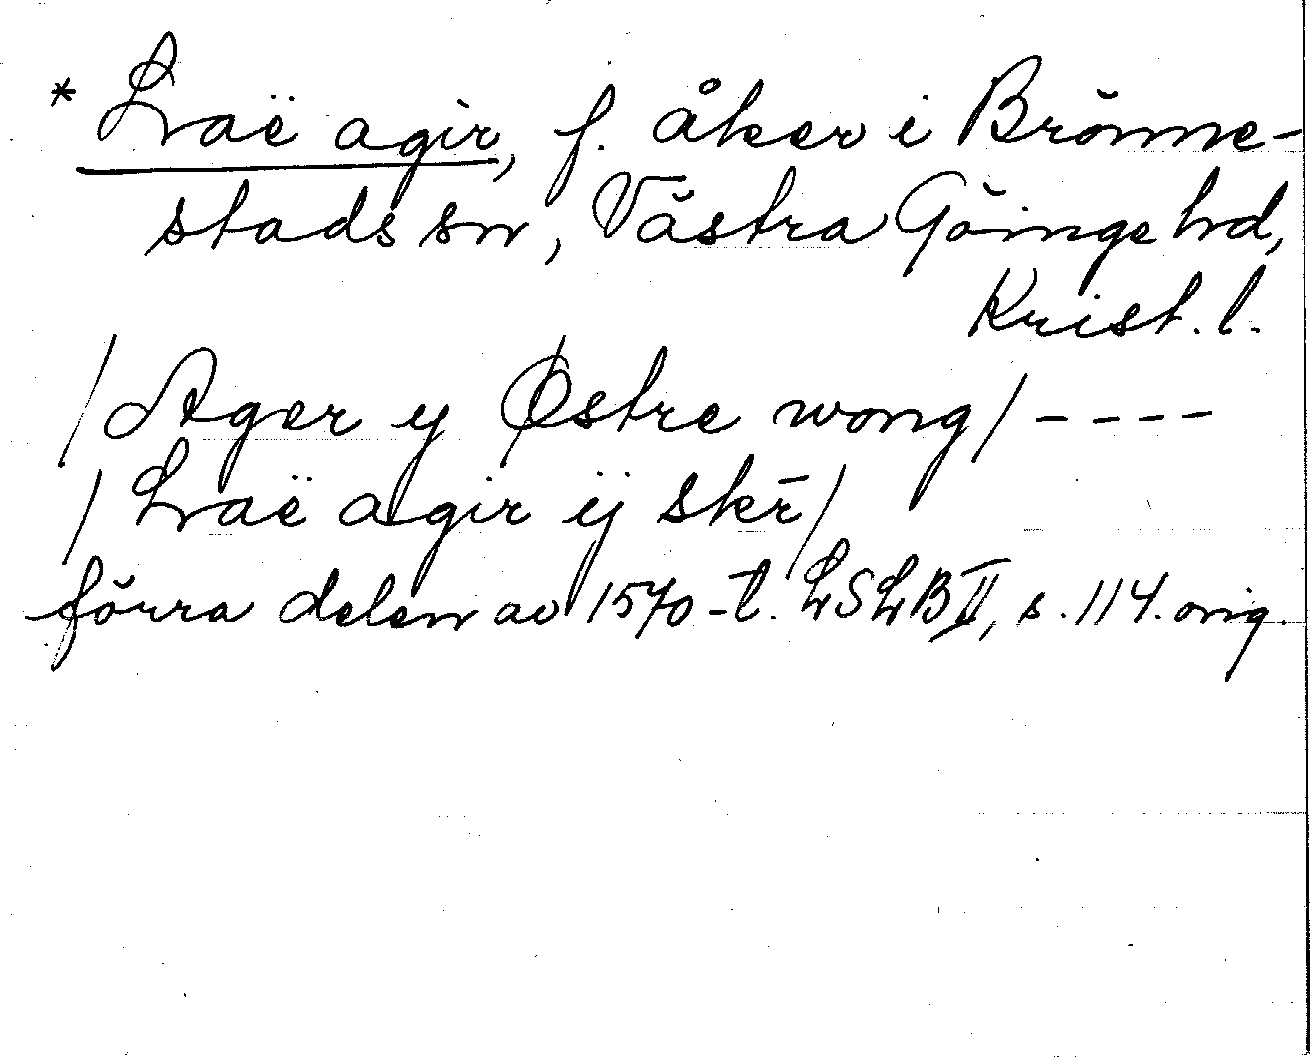 * Laë agir, f. åker i Brönne-
stads sn, Västra Göinge hd,
Krist. l.
/Ager y Østre wong/ - - - -
/Laë agir ij skē/
förra delen av 1570-t. LSLB II, s. 114. orig.